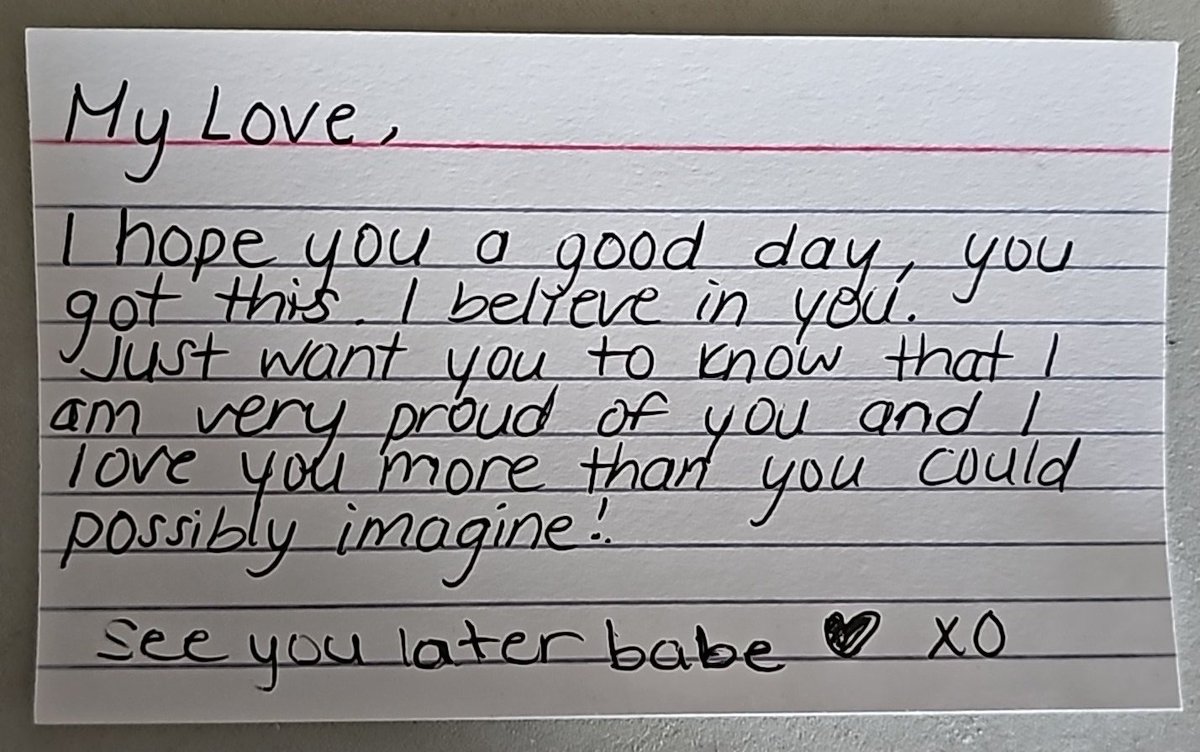 My Love,
I hope you a good day, you
got this. I believe in you.
Just want you to know that I
am very proud of you and I
love you more than you could
possibly imagine!
See you later babe ♥ XO